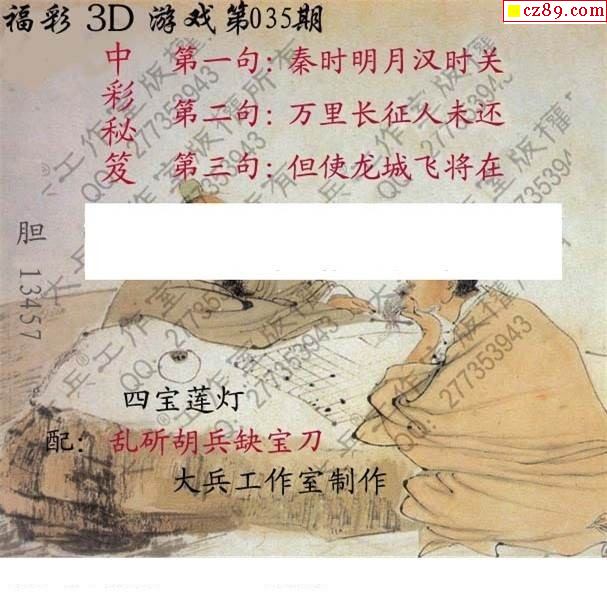 福彩 3D 游戏第035期
cz89.com
中彩秘笈
第一句：秦时明月汉时关
第二句：万里长征人未还
第三句：但使龙城飞将在
胆 13457
四宝莲灯
配：乱斫胡兵缺宝刀
大兵工作室制作
大兵®工作室版權所有
QQ：277353943